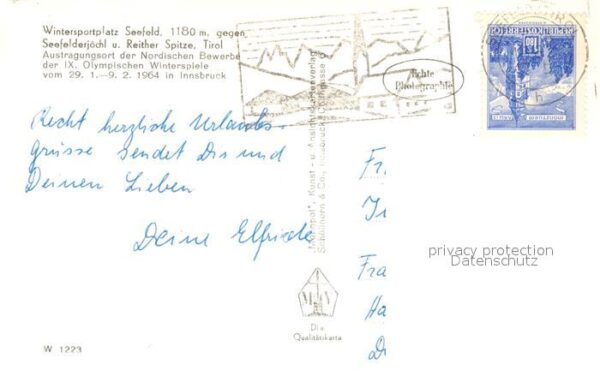 Wintersportplatz Seefeld, 1180 m, gegen
Seefelderjöchl u. Reither Spitze, Tirol
Austragungsort der Nordischen Bewerbe
der IX. Olympischen Winterspiele
vom 29. 1.—9. 2. 1964 in Innsbruck
Echte
Photographie
REPUBLIK ÖSTERREICH
1.80
Recht herzliche Urlaubs-
grüsse sendet Dir und
Deinen Lieben
Deine Elfriede
Kunst - u. Ansichtskartenverlag
& Co., Innsbruck
Fr
Fra
Ha
D
privacy protection
Datenschutz
Die
Qualitätskarte
W 1223